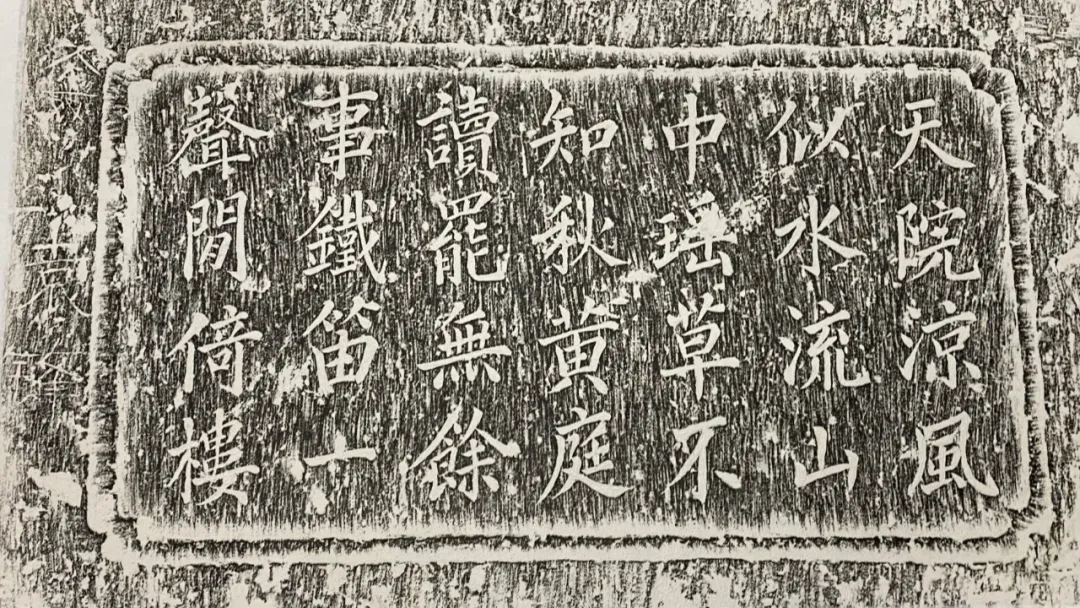 天院涼風
似水流山
中瑶草不
知秋黄庭
讀罷無餘
事鐵笛一
聲閒倚樓